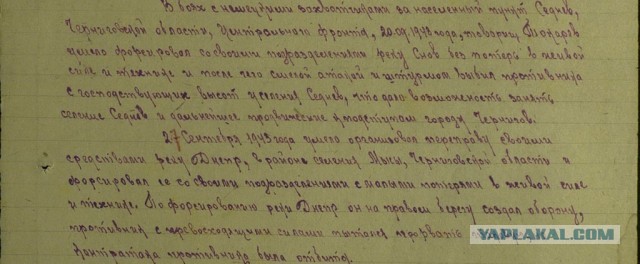 В боях с немецкими захватчиками за населенный пункт Седнев,
Черниговской области, Центрального фронта, 20.09.1943 года, товарищ Токарев
умело форсировал со своими подразделениями реку Снов без потерь в живой
силе и технике и после чего смелой атакой и штурмом выбил противника
с господствующих высот селения Седнев, что дало возможность занять
селение Седнев и дальнейшее продвижение к подступам города Чернигов.
27 Сентября 1943 года умело организовал переправу своими
средствами реку Днепр, в районе селения Мысы, Черниговской области и
форсировал ее со своими подразделениями с малыми потерями в живой силе
и технике. По форсированию реки Днепр он на правом берегу создал оборону,
противник с превосходящими силами пытался прорвать
Контратака противника была отбита.
YAPLAKAL.COM